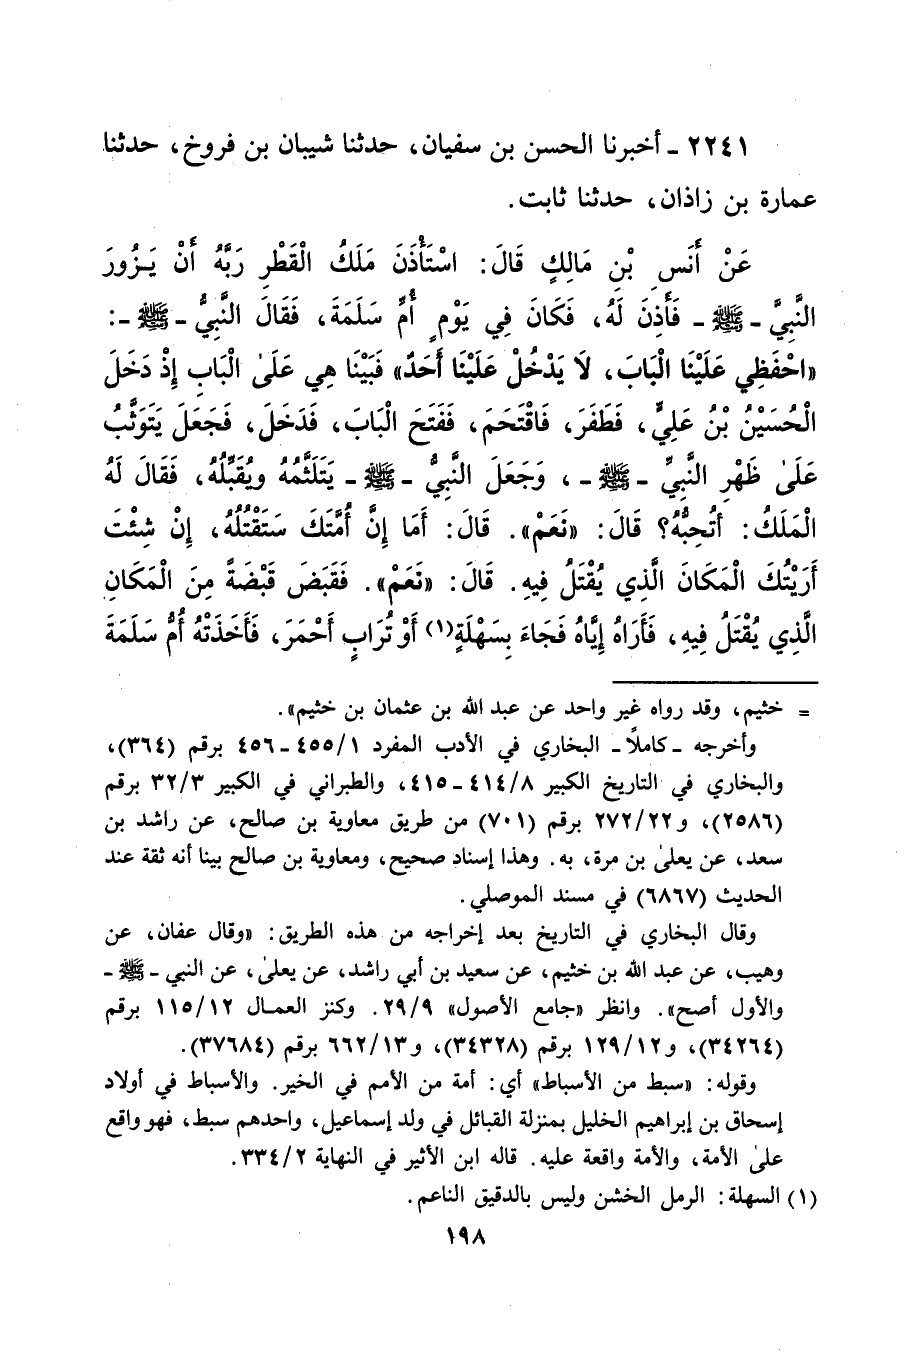 ٢٢٤١ ـ أخبرنا الحسن بن سفيان، حدثنا شيبان بن فروخ، حدثنا
عمارة بن زاذان، حدثنا ثابت.
عَنْ أَنَسِ بْنِ مَالِكٍ قَالَ: اسْتَأْذَنَ مَلَكُ الْقَطْرِ رَبَّهُ أَنْ يَزُورَ
النَّبِيَّ ـ ﷺ ـ فَأَذِنَ لَهُ، فَكَانَ فِي يَوْمِ أُمِّ سَلَمَةَ، فَقَالَ النَّبِيُّ ـ ﷺ ـ:
«احْفَظِي عَلَيْنَا الْبَابَ، لاَ يَدْخُلْ عَلَيْنَا أَحَدٌ» فَبَيْنَا هِي عَلَىٰ الْبَابِ إِذْ دَخَلَ
الْحُسَيْنُ بْنُ عَلِيٍّ، فَطَفَرَ، فَاقْتَحَمَ، فَفَتَحَ الْبَابَ، فَدَخَلَ، فَجَعَلَ يَتَوَثَّبُ
عَلَىٰ ظَهْرِ النَّبِيِّ ـ ﷺ ـ، وَجَعَلَ النَّبِيُّ ـ ﷺ ـ يَتَلَثَّمُهُ ويُقَبِّلُهُ، فَقَالَ لَهُ
الْمَلَكُ: أَتُحِبُّهُ؟ قَالَ: «نَعَمْ». قَالَ: أَمَا إِنَّ أُمَّتَكَ سَتَقْتُلُهُ، إِنْ شِئْتَ
أَرَيْتُكَ الْمَكَانَ الَّذِي يُقْتَلُ فِيهِ. قَالَ: «نَعَمْ». فَقَبَضَ قَبْضَةً مِنَ الْمَكَانِ
الَّذِي يُقْتَلُ فِيهِ، فَأَرَاهُ إِيَّاهُ فَجَاءَ بِسَهْلَةٍ(١) أَوْ تُرَابٍ أَحْمَرَ، فَأَخَذَتْهُ أُمُّ سَلَمَةَ
= خثيم، وقد رواه غير واحد عن عبد الله بن عثمان بن خثيم».
وأخرجه ـ كاملاً ـ البخاري في الأدب المفرد ١/٤٥٥ ـ ٤٥٦ برقم (٣٦٤)،
والبخاري في التاريخ الكبير ٨/٤١٤ ـ ٤١٥، والطبراني في الكبير ٣/٣٢ برقم
(٢٥٨٦)، و ٢٢/٢٧٢ برقم (٧٠١) من طريق معاوية بن صالح، عن راشد بن
سعد، عن يعلىٰ بن مرة، به. وهذا إسناد صحيح، ومعاوية بن صالح بينا أنه ثقة عند
الحديث (٦٨٦٧) في مسند الموصلي.
وقال البخاري في التاريخ بعد إخراجه من هذه الطريق: «وقال عفان، عن
وهيب، عن عبد الله بن خثيم، عن سعيد بن أبي راشد، عن يعلىٰ، عن النبي ـ ﷺ ـ
والأول أصح». وانظر «جامع الأصول» ٢٩/٩. وكنز العمال ١١٥/١٢ برقم
(٣٤٢٦٤)، و ١٢٩/١٢ برقم (٣٤٣٢٨)، و ٦٦٢/١٣ برقم (٣٧٦٨٤).
وقوله: «سبط من الأسباط» أي: أمة من الأمم في الخير. والأسباط في أولاد
إسحاق بن إبراهيم الخليل بمنزلة القبائل في ولد إسماعيل، واحدهم سبط، فهو واقع
علىٰ الأمة، والأمة واقعة عليه. قاله ابن الأثير في النهاية ٣٣٤/٢.
(١) السهلة: الرمل الخشن وليس بالدقيق الناعم.
١٩٨